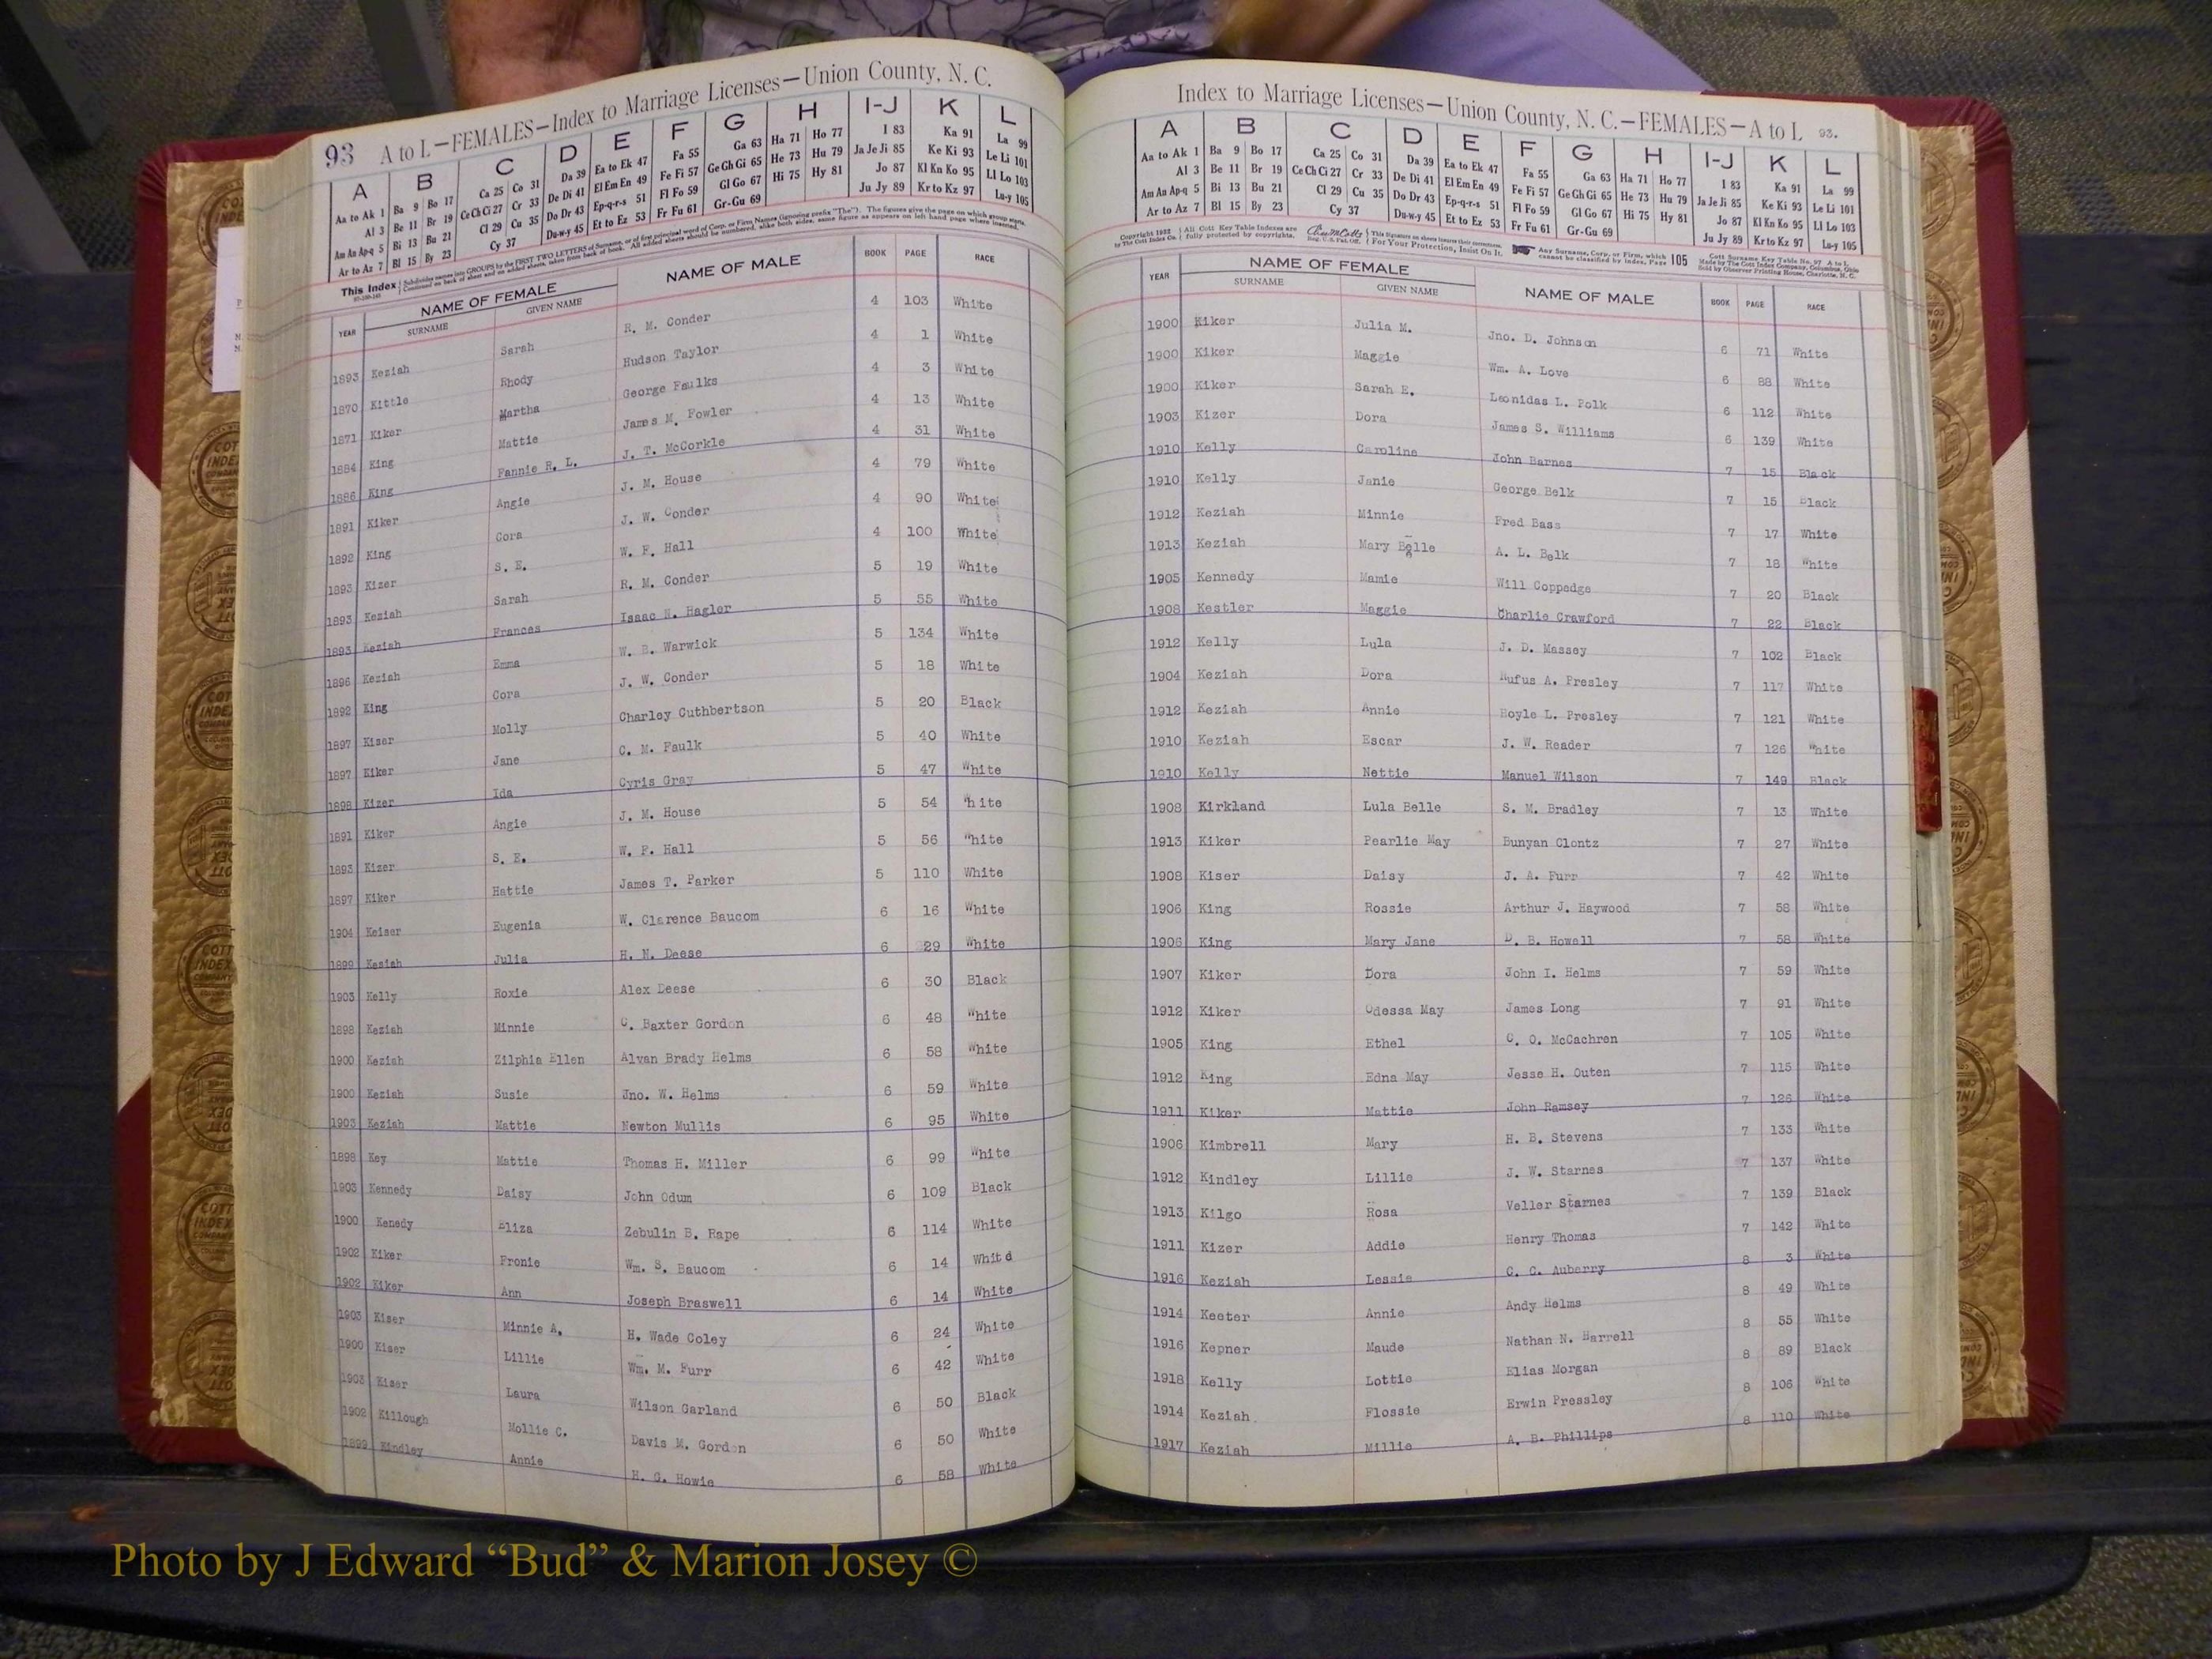 93 A to L—FEMALES—Index to Marriage Licenses—Union County, N. C.
A B C D E F G H I-J K L
Aa to Ak 1 Ba 9 Bo 17 Ca 25 Co 31 Da 39 Ea to Ek 47 Fa 55 Ga 63 Ha 71 Ho 77 I 83 Ka 91 La 99
Al 3 Be 11 Br 19 Ce Ch Ci 27 Cr 33 De Di 41 El Em En 49 Fe Fi 57 Ge Gh Gi 65 He 73 Hu 79 Ja Je Ji 85 Ke Ki 93 Le Li 101
Am An Ap-q 5 Bi 13 Bu 21 Cl 29 Cu 35 Do Dr 43 Ep-q-r-s 51 Fl Fo 59 Gl Go 67 Hi 75 Hy 81 Jo 87 Kl Kn Ko 95 Ll Lo 103
Ar to Az 7 Bl 15 By 23 Cy 37 Du-w-y 45 Et to Ez 53 Fr Fu 61 Gr-Gu 69 Ju Jy 89 Kr to Kz 97 Lu-y 105
This Index Subdivides names into GROUPS by the FIRST TWO LETTERS of Surname, or of first principal word of Corp. or Firm Names (ignoring prefix "The"). The figures give the page on which group starts.
Continued on back of sheet and on added sheets, taken from back of book. All added sheets should be numbered, alike both sides, same figure as appears on left hand page where inserted.
YEAR NAME OF FEMALE NAME OF MALE BOOK PAGE RACE
SURNAME GIVEN NAME
1893 Keziah Sarah R. M. Conder 4 103 White
1870 Kittle Rhody Hudson Taylor 4 1 White
1871 Kiker Martha George Faulks 4 3 White
1884 King Mattie James M. Fowler 4 13 White
1886 King Fannie R. L. J. T. McCorkle 4 31 White
1891 Kiker Angie J. M. House 4 79 White
1892 King Cora J. W. Conder 4 90 White
1893 Kizer S. E. W. F. Hall 4 100 White
1893 Keziah Sarah R. M. Conder 5 19 White
1893 Keziah Frances Isaac N. Hagler 5 55 White
1896 Keziah Emma W. B. Warwick 5 134 White
1892 King Cora J. W. Conder 5 18 White
1897 Kiser Molly Charley Cuthbertson 5 20 Black
1897 Kiker Jane C. M. Faulk 5 40 White
1898 Kizer Ida Cyris Gray 5 47 White
1891 Kiker Angie J. M. House 5 54 White
1893 Kizer S. E. W. F. Hall 5 56 White
1897 Kiker Hattie James T. Parker 5 110 White
1904 Keiser Eugenia W. Clarence Baucom 6 16 White
1899 Keziah Julia H. N. Deese 6 29 White
1903 Kelly Roxie Alex Deese 6 30 Black
1898 Keziah Minnie C. Baxter Gordon 6 48 White
1900 Keziah Zilphia Ellen Alvan Brady Helms 6 58 White
1900 Keziah Susie Jno. W. Helms 6 59 White
1903 Keziah Mattie Newton Mullis 6 95 White
1898 Key Mattie Thomas H. Miller 6 99 White
1903 Kennedy Daisy John Odum 6 109 Black
1900 Kenedy Eliza Zebulin B. Rape 6 114 White
1902 Kiker Fronie Wm. S. Baucom 6 14 Whitd
1902 Kiker Ann Joseph Braswell 6 14 White
1903 Kiser Minnie A. H. Wade Coley 6 24 White
1900 Kiser Lillie Wm. M. Furr 6 42 White
1903 Kiser Laura Wilson Garland 6 50 Black
1902 Killough Mollie C. Davis M. Gordon 6 50 White
1899 Kindley Annie H. G. Howie 6 58 White
Index to Marriage Licenses—Union County, N. C.—FEMALES—A to L 93.
A B C D E F G H I-J K L
Aa to Ak 1 Ba 9 Bo 17 Ca 25 Co 31 Da 39 Ea to Ek 47 Fa 55 Ga 63 Ha 71 Ho 77 I 83 Ka 91 La 99
Al 3 Be 11 Br 19 Ce Ch Ci 27 Cr 33 De Di 41 El Em En 49 Fe Fi 57 Ge Gh Gi 65 He 73 Hu 79 Ja Je Ji 85 Ke Ki 93 Le Li 101
Am An Ap-q 5 Bi 13 Bu 21 Cl 29 Cu 35 Do Dr 43 Ep-q-r-s 51 Fl Fo 59 Gl Go 67 Hi 75 Hy 81 Jo 87 Kl Kn Ko 95 Ll Lo 103
Ar to Az 7 Bl 15 By 23 Cy 37 Du-w-y 45 Et to Ez 53 Fr Fu 61 Gr-Gu 69 Ju Jy 89 Kr to Kz 97 Lu-y 105
Copyright 1932 All Cott Key Table Indexes are This signature on sheets insures their correctness. Any Surname, Corp. or Firm, which Cott Surname Key Table No. 97 A to L
by The Cott Index Co. fully protected by copyrights. Reg. U. S. Pat. Off. For Your Protection, Insist On It. cannot be classified by index, Page 105 Made by The Cott Index Company, Columbus, Ohio
Sold by Observer Printing House, Charlotte, N. C.
YEAR NAME OF FEMALE NAME OF MALE BOOK PAGE RACE
SURNAME GIVEN NAME
1900 Kiker Julia M. Jno. D. Johnson 6 71 White
1900 Kiker Maggie Wm. A. Love 6 88 White
1900 Kiker Sarah E. Leonidas L. Polk 6 112 White
1903 Kizer Dora James S. Williams 6 139 White
1910 Kelly Caroline John Barnes 7 15 Black
1910 Kelly Janie George Belk 7 15 Black
1912 Keziah Minnie Fred Bass 7 17 White
1913 Keziah Mary Belle A. L. Belk 7 18 White
1905 Kennedy Mamie Will Coppedge 7 20 Black
1908 Kestler Maggie Charlie Crawford 7 22 Black
1912 Kelly Lula J. D. Massey 7 102 Black
1904 Keziah Dora Rufus A. Presley 7 117 White
1912 Keziah Annie Hoyle L. Presley 7 121 White
1910 Keziah Escar J. W. Reader 7 126 White
1910 Kelly Nettie Manuel Wilson 7 149 Black
1908 Kirkland Lula Belle S. M. Bradley 7 13 White
1913 Kiker Pearlie May Bunyan Clontz 7 27 White
1908 Kiser Daisy J. A. Furr 7 42 White
1906 King Rossie Arthur J. Haywood 7 58 White
1906 King Mary Jane D. B. Howell 7 58 White
1907 Kiker Dora John I. Helms 7 59 White
1912 Kiker Odessa May James Long 7 91 White
1905 King Ethel C. O. McCachren 7 105 White
1912 King Edna May Jesse H. Outen 7 115 White
1911 Kiker Mattie John Ramsey 7 126 White
1906 Kimbrell Mary H. B. Stevens 7 133 White
1912 Kindley Lillie J. W. Starnes 7 137 White
1913 Kilgo Rosa Veller Starnes 7 139 Black
1911 Kizer Addie Henry Thomas 7 142 White
1916 Keziah Lessie C. C. Auberry 8 3 White
1914 Keeter Annie Andy Helms 8 49 White
1916 Kepner Maude Nathan N. Harrell 8 55 White
1918 Kelly Lottie Elias Morgan 8 89 Black
1914 Keziah. Flossie Erwin Pressley 8 106 White
1917 Keziah Millie A. B. Phillips 8 110 White
Photo by J Edward “Bud” & Marion Josey ©